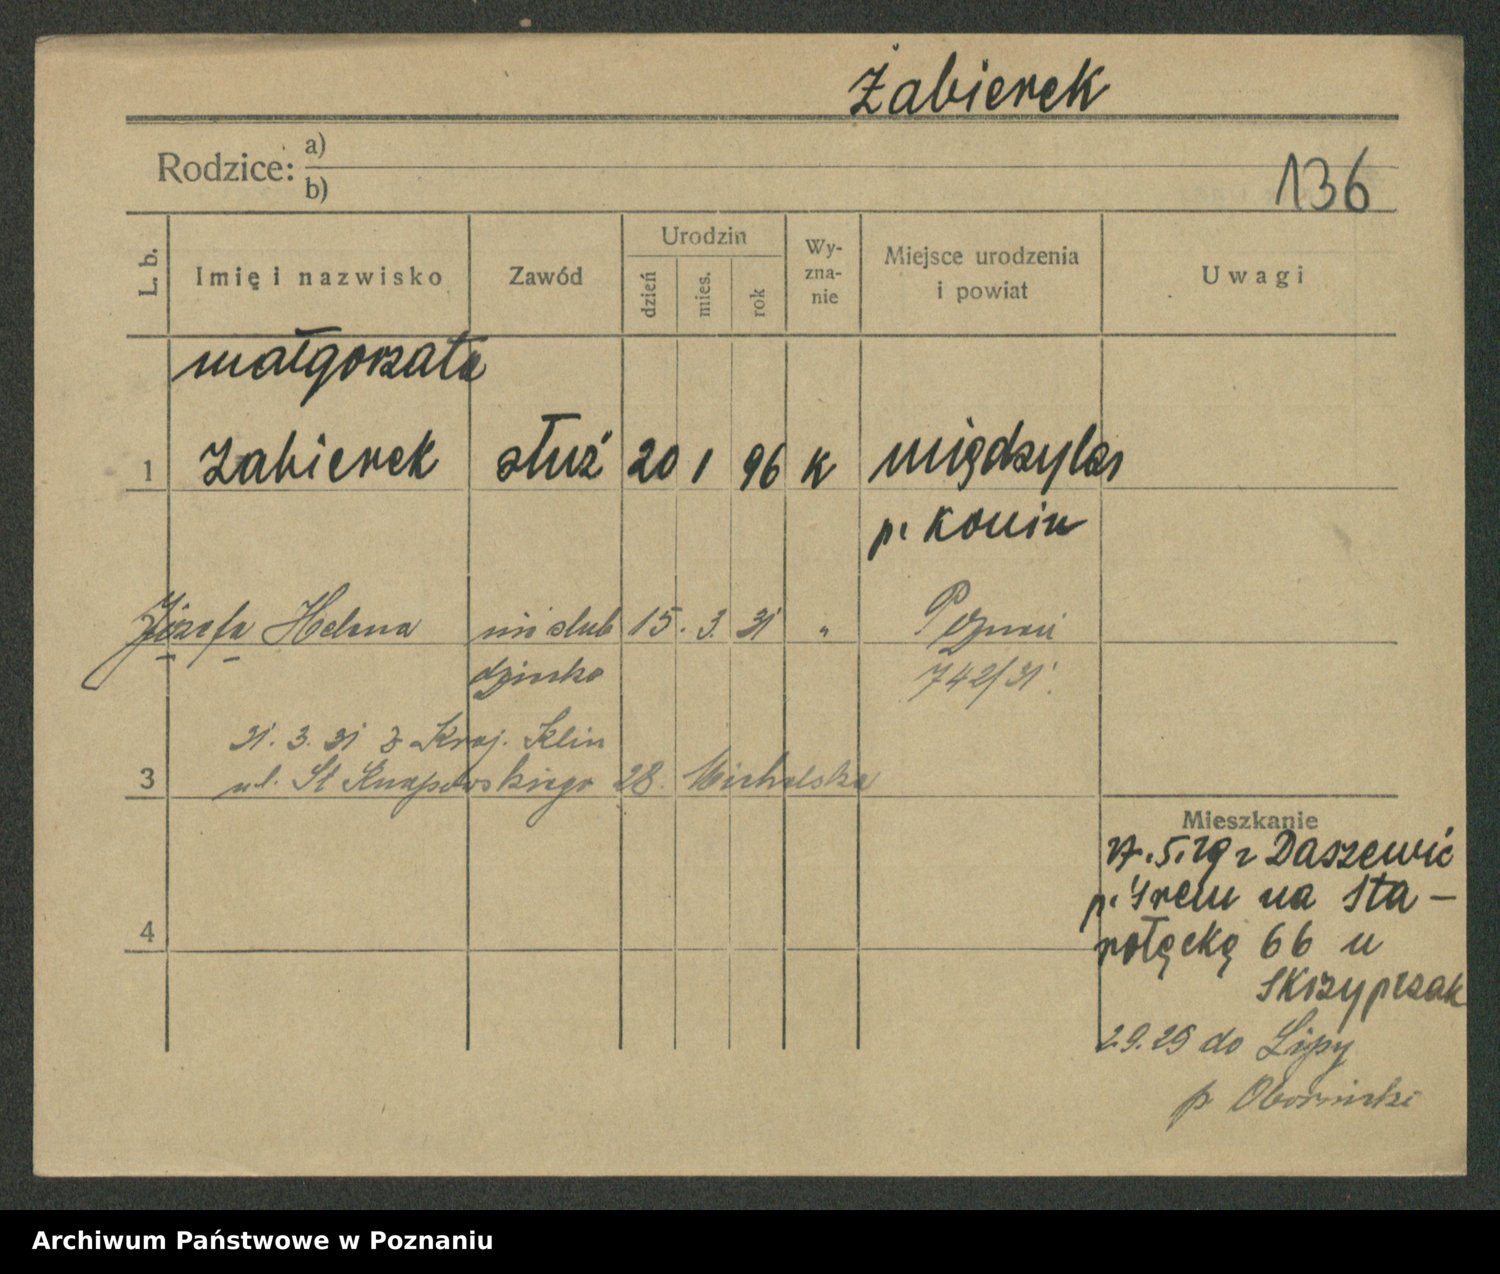 Żabierek
Rodzice: a)
b)
136
L. b. Imię i nazwisko Zawód Urodzin dzień mies. rok Wy-zna-nie Miejsce urodzenia i powiat Uwagi
małgorzata
1 Żabierek służ 20 1 96 K międzyles
p. Konin
Józefa Helena nieślub 15. 3. 31 " Poznań
dziecko 742/31.
31. 3. 31 z Kraj. Klin
3 ul. St Knapowskiego 28. Michalska
Mieszkanie
5. 29 z Daszewic
p. Śrem na Sta-
4 rołęcką 66 u
Skrzypczak
2.9.29 do Lipy
p. Obornicki
Archiwum Państwowe w Poznaniu